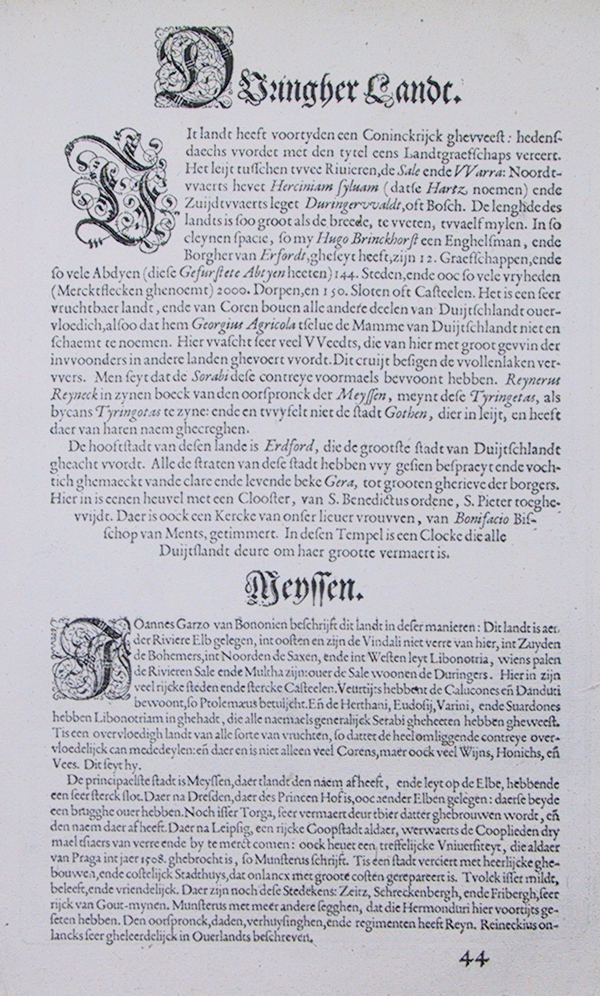 DUringher Landt.
DIt landt heeft voortyden een Coninckrijck ghevveest: hedens-
daechs vvordet met den tytel eens Landtgraefschaps vereert.
Het leijt tusschen tvvee Riuieren, de Sale ende VVarra: Noordt-
vvaerts hevet Herciniam syluam (datse Hartz noemen) ende
Zuijdtvvaerts leget Duringervvaldt, oft Bosch. De lenghde des
landts is soo groot als de breede, te vveten, tvvaelf mylen. In so
cleynen spacie, so my Hugo Brinckhorst een Enghelsman, ende
Borgher van Erfordt, gheseyt heeft, zijn 12. Graefschappen, ende
so vele Abdyen (diese Gefurstete Abtyen heeten) 144. Steden, ende ooc so vele vryheden
(Mercktflecken ghenoemt) 2000. Dorpen, en 150. Sloten oft Casteelen. Het is een seer
vruchtbaer landt, ende van Coren bouen alle andere deelen van Duijtschlandt ouer-
vloedich, alsoo dat hem Georgius Agricola tselue de Mamme van Duijtschlandt niet en
schaemt te noemen. Hier vvascht seer veel VVeedts, die van hier met groot gevvin der
invvoonders in andere landen ghevoert vvordt. Dit cruijt besigen de vvollenlaken ver-
vvers. Men seyt dat de Sorabi dese contreye voormaels bevvoont hebben. Reynerus
Reyneck in zynen boeck van den oorspronck der Meyssen, meynt dese Tyringetas, als
bycans Tyringotas te zyne: ende en tvvyfelt niet de stadt Gothen, dier in leijt, en heeft
daer van haren naem ghecreghen.
De hooftstadt van desen lande is Erdford, die de grootste stadt van Duijtschlandt
gheacht vvordt. Alle de straten van dese stadt hebben vvy gesien bespraeyt ende voch-
tich ghemaeckt vande clare ende levende beke Gera, tot grooten gherieve der borgers.
Hier in is eenen heuvel met een Clooster, van S. Benedictus ordene, S. Pieter toeghe-
vvijdt. Daer is oock een Kercke van onser lieuer vrouvven, van Bonifacio Bis-
schop van Ments, getimmert. In desen Tempel is een Clocke die alle
Duijtslandt deure om haer grootte vermaert is.
Meyssen.
IOannes Garzo van Bononien beschrijft dit landt in deser manieren: Dit landt is aen
der Riviere Elb gelegen, int oosten en zijn de Vindali niet verre van hier, int Zuyden
de Bohemers, int Noorden de Saxen, ende int Westen leyt Libonotria, wiens palen
de Rivieren Sale ende Mulcha zijn: ouer de Sale woonen de Duringers. Hier in zijn
veel rijcke steden ende stercke Casteelen. Veurtijts hebbent de Calucones eñ Danduti
bewoont, so Ptolemæus betuijcht. Eñ de Herthani, Eudosij, Varini, ende Suardones
hebben Libonotriam in ghehadt, die alle naemaels generalijck Serabi gheheeten hebben gheweest.
Tis een overvloedigh landt van alle sorte van vruchten, so datter de heel omliggende contreye over-
vloedelijck can mededeylen: eñ daer en is niet alleen veel Corens, maer oock veel Wijns, Honichs, eñ
Vees. Dit seyt hy.
De principaelste stadt is Meyssen, daer tlandt den naem af heeft, ende leyt op de Elbe, hebbende
een seer sterck slot. Daer na Dresden, daer des Princen Hof is, ooc aender Elben gelegen: daerse beyde
een brugghe ouer hebben. Noch isser Torga, seer vermaert deur tbier datter ghebrouwen wordt, eñ
den naem daer af heeft. Daer na Leipsig, een rijcke Coopstadt aldaer, werwaerts de Cooplieden dry
mael tsiaers van verre ende by te merct comen: oock heuet een treffelijcke Vniuersiteyt, die aldaer
van Praga int jaer 1508. ghebrocht is, so Munsterus schrijft. Tis een stadt verciert met heerlijcke ghe-
bouwen, ende costelijck Stadthuys, dat onlancx met groote costen gerepareert is. Tvolck isser mildt,
beleeft, ende vriendelijck. Daer zijn noch dese Stedekens: Zeitz, Schreckenbergh, ende Fribergh, seer
rijck van Gout-mynen. Munsterus met meer andere segghen, dat die Hermonduri hier voortijts ge-
seten hebben. Den oorspronck, daden, verhuysinghen, ende regimenten heeft Reyn. Reineckius on-
lancks seer gheleerdelijck in Ouerlandts beschreven.
44